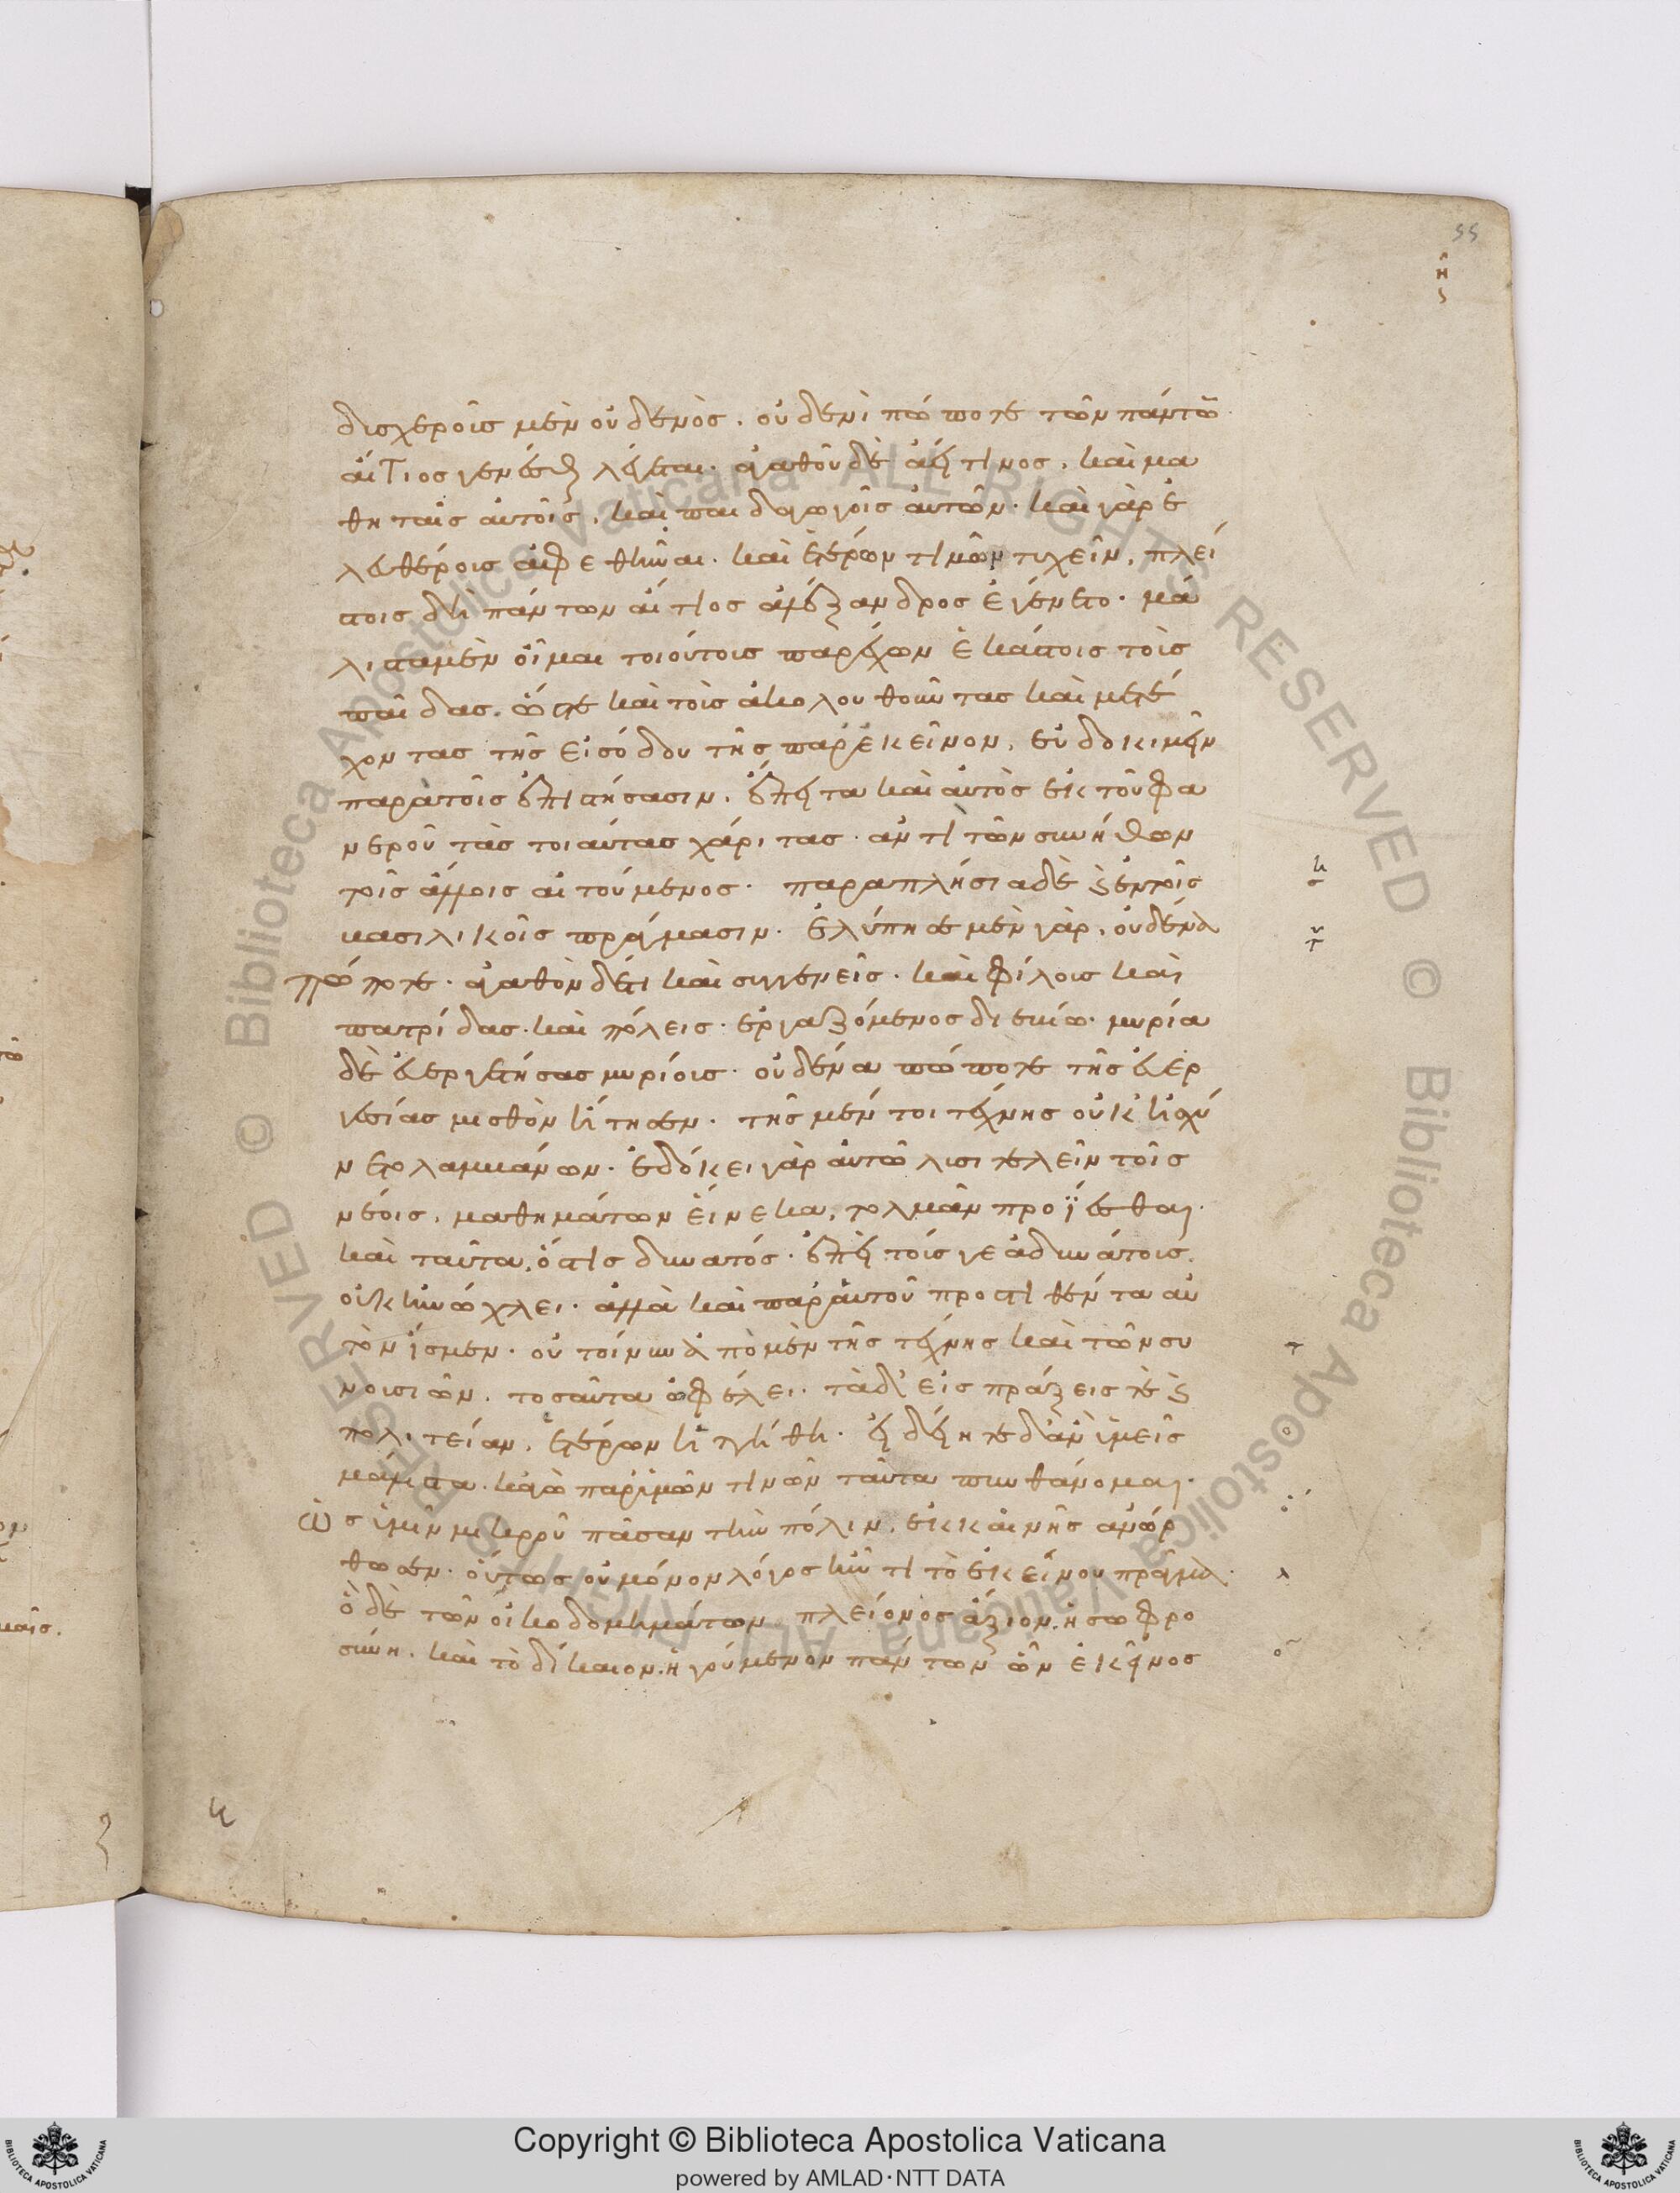 55
δυσχεροῦς μὲν οὐδενὸς. οὐδενὶ πώποτε τῶν πάντω
αἴτιος γενέσθαι λέγεται. ἀγαθοῦ δὲ ἀεί τινος. καὶ μα
θηταῖς αὐτοῖς. καὶ παιδαγωγοῖς αὐτῶν. καὶ γὰρ ἐ
λευθέροις ἀφεθῆναι. καὶ ἑτέρων τιμῶν τυχεῖν, πλεί
στοις δὴ πάντων αἴτιος ἀλέξανδρος ἐγένετο. μά
λιστα μὲν οἶμαι τοιούτους παρέχων ἑκάστοις τοὺς
παῖδας. ὥστε καὶ τοὺς ἀκολουθοῦντας καὶ μετέ
χοντας τῆς εἰσόδου τῆς παρ' ἐκεῖνον, εὐδοκιμεῖν
παρὰ τοῖς ἐπιστήσασιν. ἔπειτα καὶ αὐτὸς ἐκ τοῦ φα
νεροῦ τὰς τοιαύτας χάριτας. ἀντὶ τῶν συνήθων
τοῖς ἄλλοις αἰτούμενος. παραπλήσια δὲ κἀν τοῖς
βασιλικοῖς πράγμασιν. ἐλύπησε μὲν γὰρ, οὐδένα
πώποτε. ἀγαθὸν δέ τι καὶ συγγενεῖς. καὶ φίλους καὶ
πατρίδας. καὶ πόλεις. ἐργαζόμενος διεβίω. μυρία
δὲ εὐεργετήσας μυρίους. οὐδένα πώποτε τῆς εὐερ
γεσίας μισθὸν ᾔτησεν. τῆς μέν τοι τέχνης οὐκ ᾐσχύ
νετο λαμβάνων. ἐδόκει γὰρ αὐτῷ λυσιτελεῖν τοῖς
νέοις. μαθημάτων εἵνεκα, τολμᾶν προΐεσθαι.
καὶ ταῦτα, ὅστις δυνατός. ἐπεὶ τοῖς γε ἀδυνάτοις
οὐκ ἠνώχλει. ἀλλὰ καὶ παρ' αὑτοῦ προστιθέντα αὐ
τὸν ἴσμεν. οὐ τοίνυν ἀπὸ μὲν τῆς τέχνης καὶ τῶν συ
νουσιῶν. τοσαῦτα ὠφέλει. τὰ δ' εἰς πράξεις τε καὶ
πολιτείαν. ἑτέρων ἡττήθη. εἰδείητε δ' ἂν ὑμεῖς
μάλιστα. κἀγὼ παρ' ὑμῶν τινῶν ταῦτα πυνθάνομαι.
ὡς ὑμῖν μικροῦ πᾶσαν τὴν πόλιν, ἐκ καινῆς ἀνώρ
θωσεν. οὕτως οὐ μόνον λόγος ἦν τι τὸ ἐκείνου πρᾶγμα.
ὃ δὲ τῶν οἰκοδομημάτων πλείονος ἄξιον. ἡ σωφρο
σύνη. καὶ τὸ δίκαιον. ἡγούμενον πάντων ὧν ἐκεῖνος